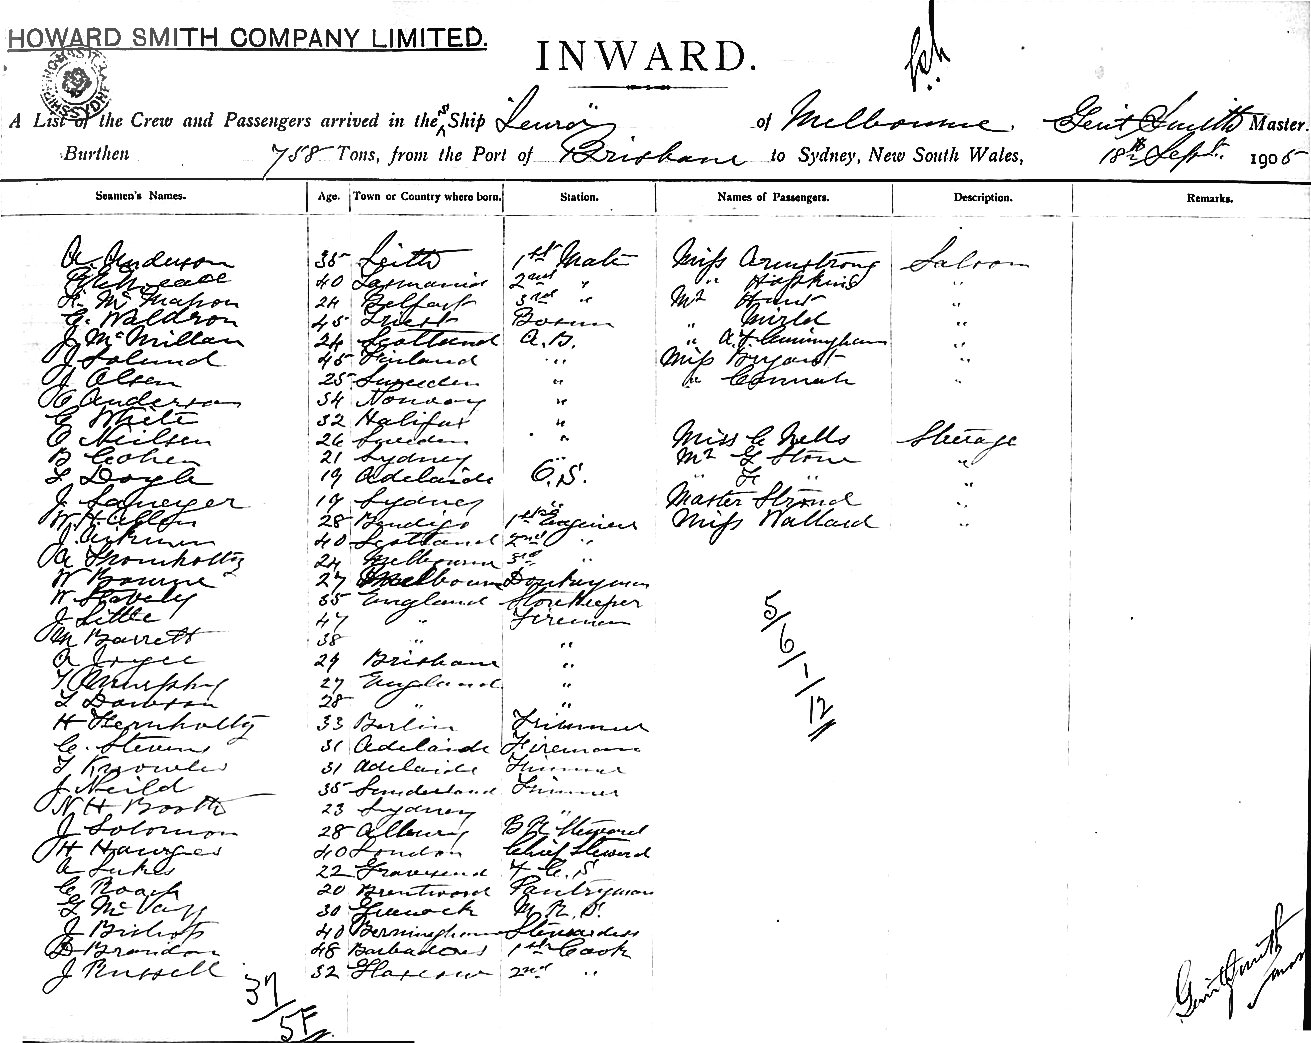 HOWARD SMITH COMPANY LIMITED.
INWARD.
A List of the Crew and Passengers arrived in the SShip of Melbourne. Gerit Smith Master.
Burthen 758 Tons, from the Port of Brisbane to Sydney, New South Wales, 18th Sept. 1905
Seamen's Names. Age. Town or Country where born. Station. Names of Passengers. Description. Remarks.
A. Anderson 35 Leith 1st Mate Miss Armstrong Saloon
40 Tasmania 2nd " " Hopkins "
McMahon 24 Belfast 3rd " Mr Hunt "
G. Waldron 45 Triest Bosun " "
J. McMillan 24 Scotland A.B. " A. J. Cunningham "
J. 45 Finland " Miss Bryant "
Olsen 25 Sweeden " " Cannah "
C Anderson 34 Norway "
G White 32 Halifax "
C Neilsen 26 Sweden " Miss C Nells Steerage
B Cohen 21 Sydney " Mr G Stone "
Doyle 19 Adelaide O.S. " " "
J. 19 Sydney " Master Stroud "
W. H. Allen 28 Bendigo 1st Engineer Miss Wallard "
J. Aikman 40 Scotland 2nd "
A 24 Melbourne 3rd "
W Bourne 27 Melbourn Donkeyman
W Stavely 35 England Storekeeper
J Little 47 " Fireman
M Barrett 38 " "
A Joyce 29 Brisbane "
Murphy 27 England "
Dawson 28 " "
H Hernholtz 33 Berlin Trimmer
C. Stevens 31 Adelaide Fireman
T Knowles 31 Adelaide Trimmer
J Neild 35 Sunderland Trimmer
N H Booth 23 Sydney "
J Solomon 28 Albury Steward
H Hawges 40 London Chief Steward
A Lukes 22 Gravesend F. C. S
C Roach 20 Brentwood Pantryman
G McVay 30 Greenock M. R. S.
J Bishop 40 Bermingham Stewardess
B Brandon 48 Barbadoes 1st Cook
J Russell 32 Glascow 2nd "
5/6/1/12
37/5F
Gerit Smith